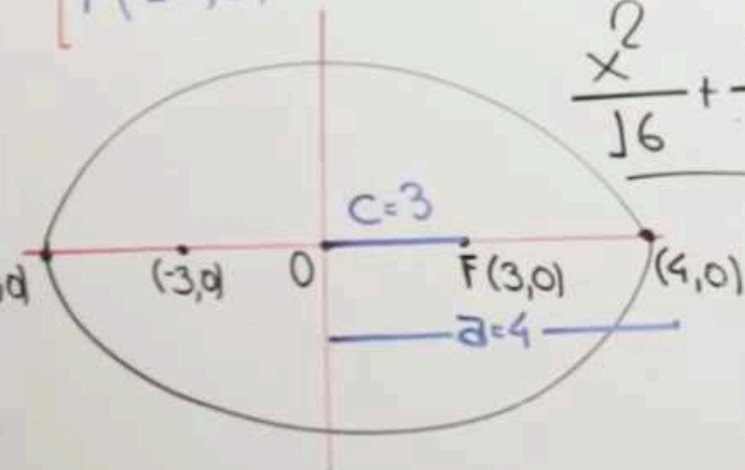 x²
16 +
c=3
(-3,0) O F(3,0) (4,0)
a=4